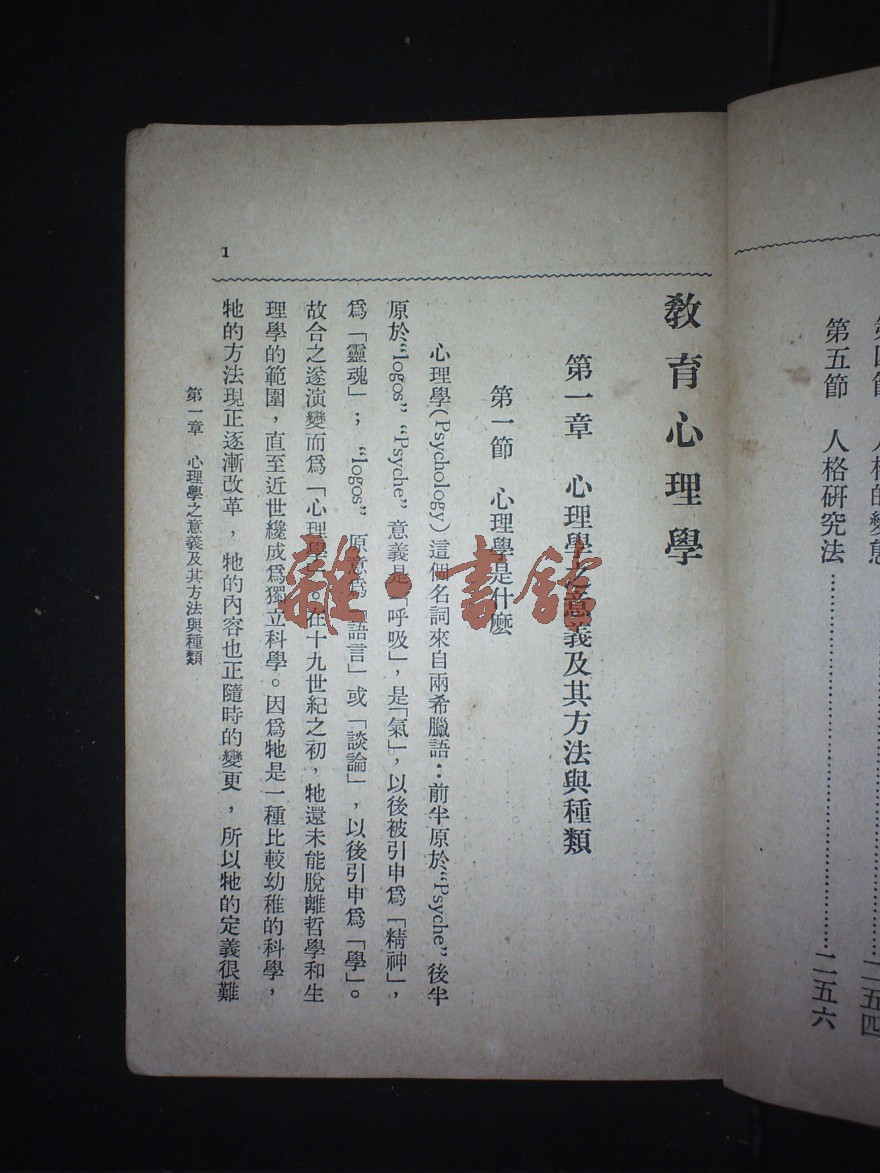 第四節　人格的變態……………二五四
第五節　人格研究法……………二五六
教育心理學
第一章　心理學之意義及其方法與種類
第一節　心理學是什麽
心理學(Psychology)這個名詞來自兩希臘語：前半原於“Psyche”後半
原於“logos”“Psyche”意義是「呼吸」，是「氣」，以後被引申爲「精神」，
爲「靈魂」；“logos”原意爲「語言」或「談論」，以後引申爲「學」。
故合之遂演變而爲「心理學」。在十九世紀之初，牠還未能脫離哲學和生
理學的範圍，直至近世纔成爲獨立科學。因爲牠是一種比較幼稚的科學，
牠的方法現正逐漸改革，牠的內容也正隨時的變更，所以牠的定義很難
第一章　心理學之意義及其方法與種類
1
雜·書館